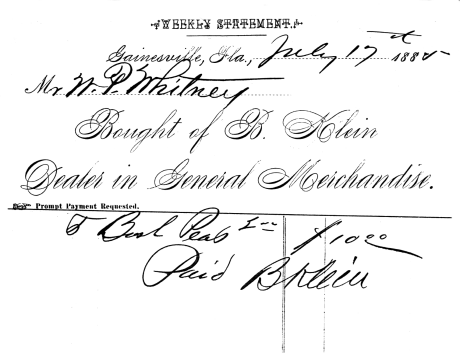 WEEKLY STATEMENT.
Gainesville, Fla., July 17 188
Mr W. P. Whitney
Bought of B. Klein
Dealer in General Merchandise.
Prompt Payment Requested.
$10.00
Paid B Klein